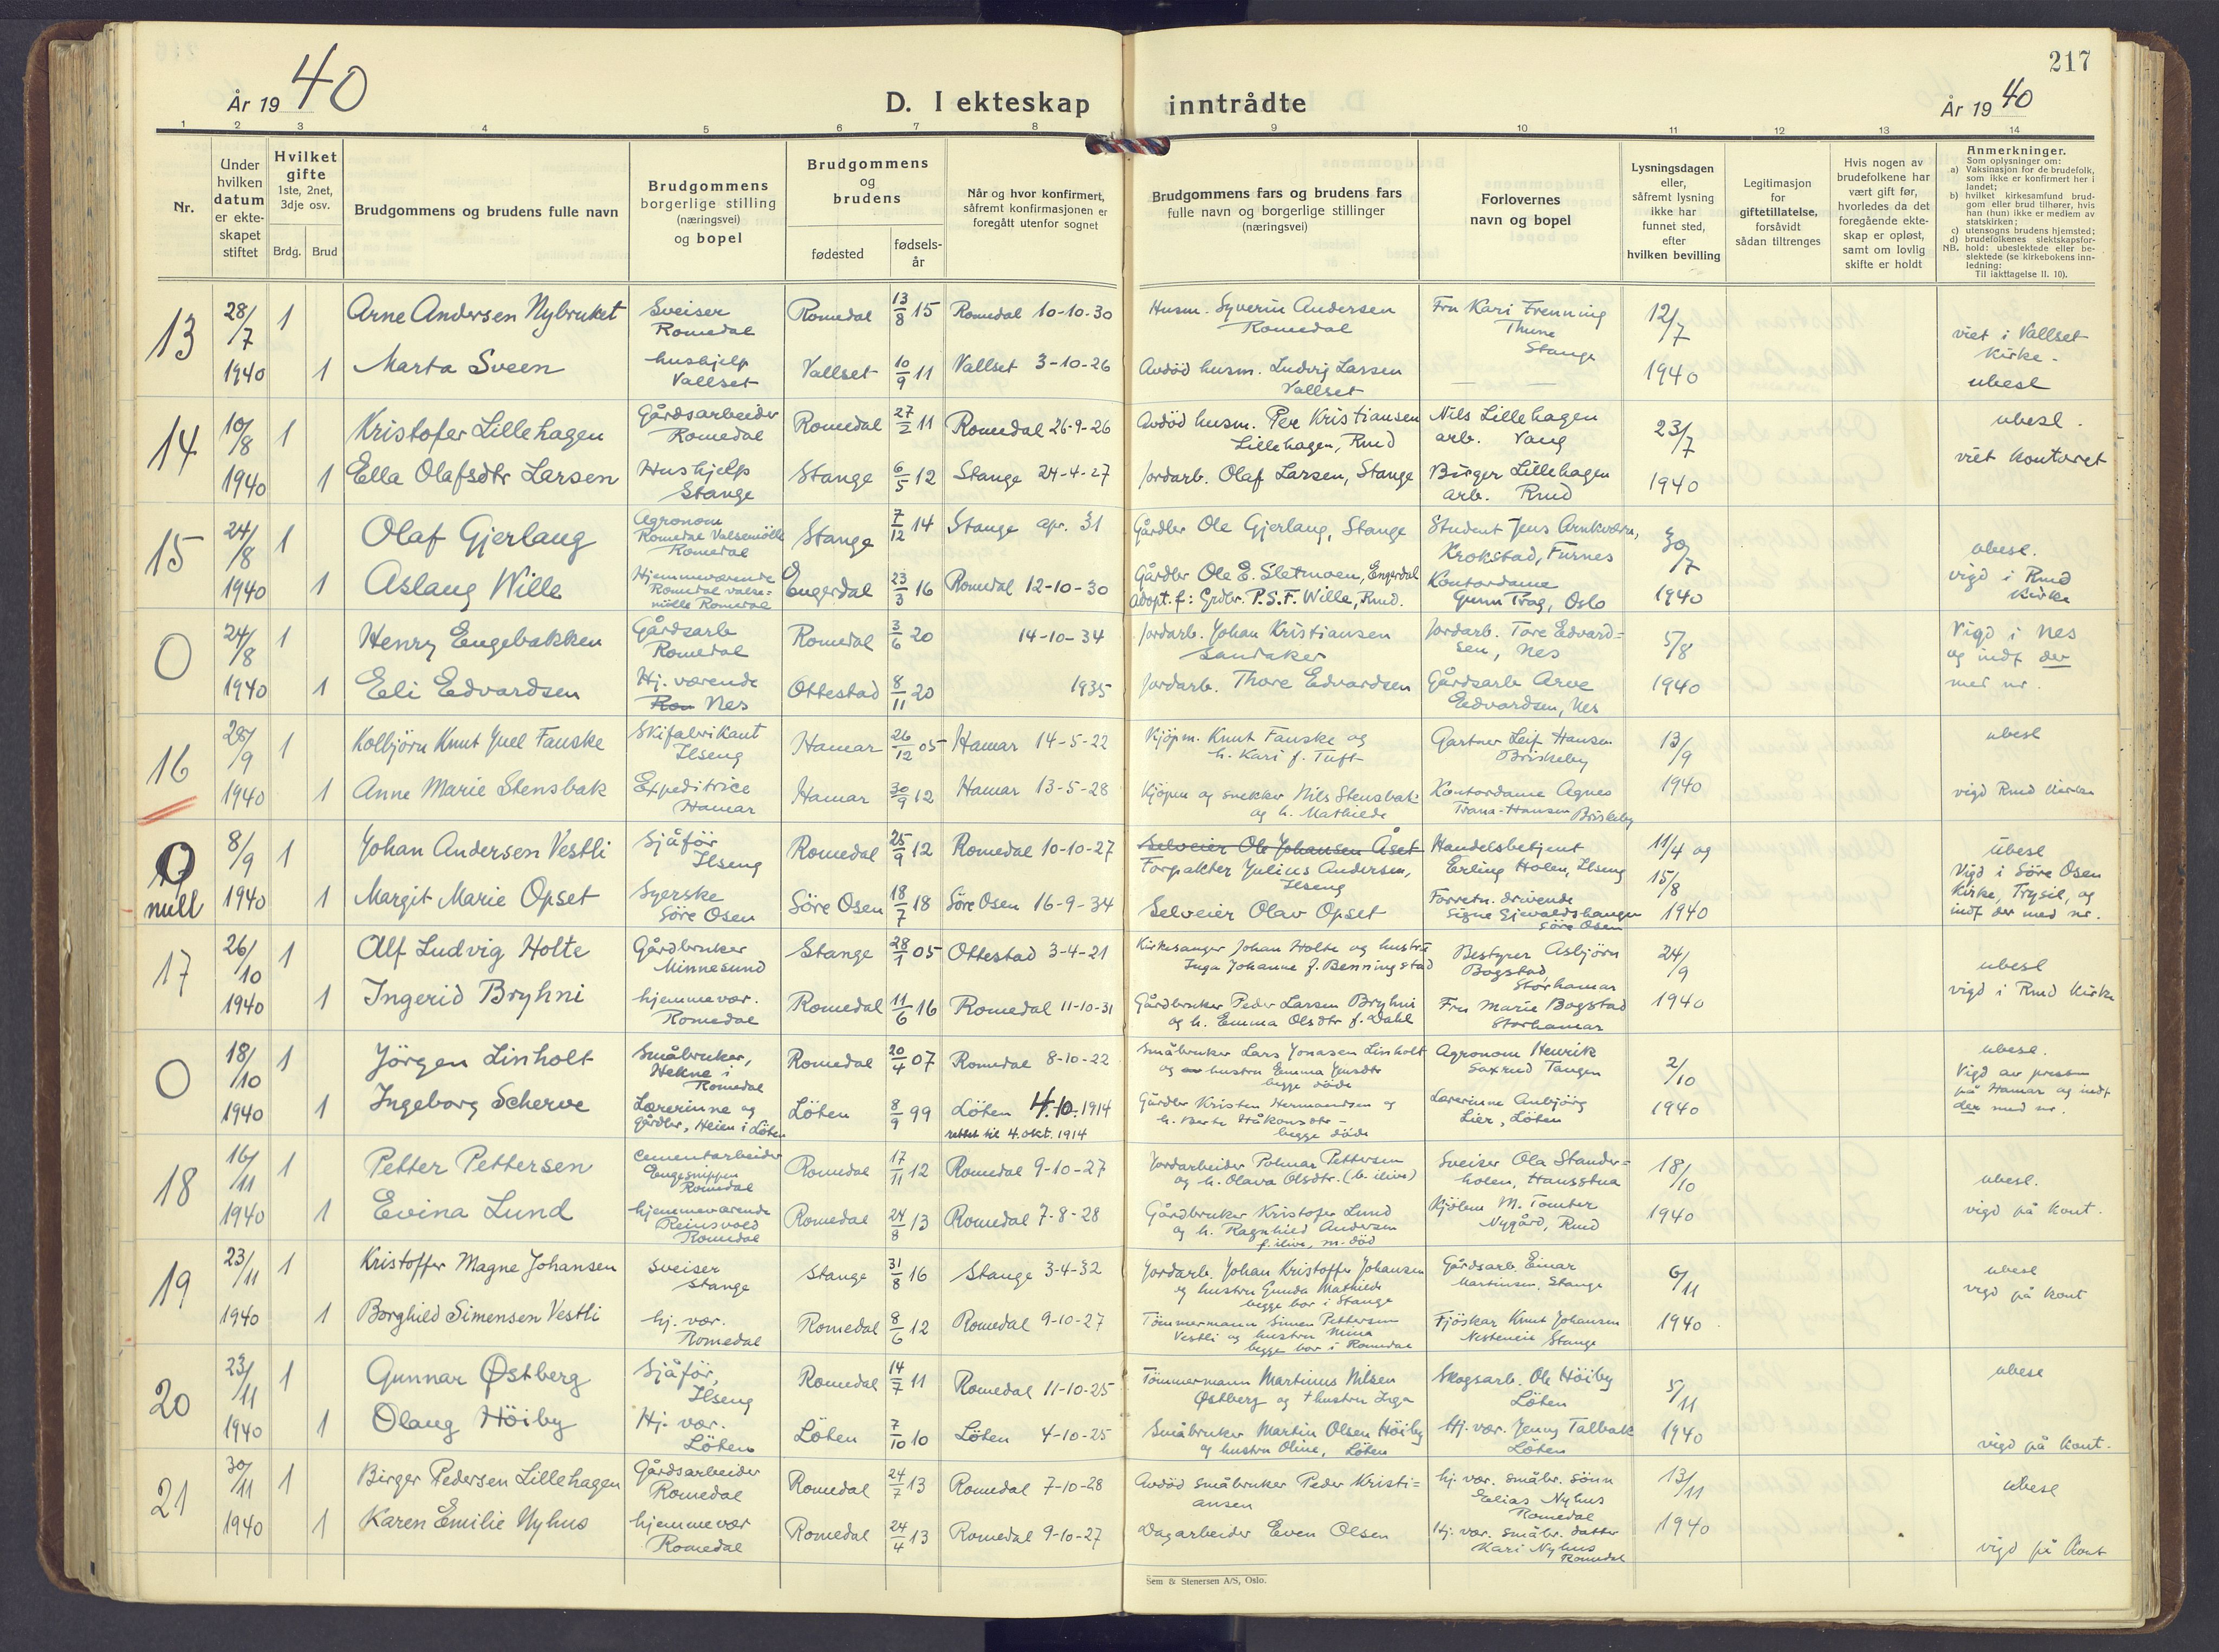 217
År 1940
D. I ekteskap inntrådte
År 1940
1 2 3 4 5 6 7 8 9 10 11 12 13 14
Nr.
Under hvilken datum er ekteskapet stiftet
Hvilket gifte
1ste, 2net, 3dje osv.
Brdg. Brud
Brudgommens og brudens fulle navn
Brudgommens borgerlige stilling (næringsvei) og bopel
Brudgommens og brudens
fødested
fødselsår
Når og hvor konfirmert, såfremt konfirmasjonen er foregått utenfor sognet
Brudgommens fars og brudens fars fulle navn og borgerlige stillinger (næringsvei)
Forlovernes navn og bopel
Lysningsdagen eller, såfremt lysning ikke har funnet sted, efter hvilken bevilling
Legitimasjon for giftetillatelse, forsåvidt sådan tiltrenges
Hvis nogen av brudefolkene har vært gift før, hvorledes da det foregående ekteskap er opløst, samt om lovlig skifte er holdt
Anmerkninger.
Som oplysninger om:
a) Vaksinasjon for de brudefolk, som ikke er konfirmert her i landet;
b) hvilket kirkesamfund brudgom eller brud tilhører, hvis han (hun) ikke er medlem av statskirken;
c) utensogns brudens hjemsted;
d) brudefolkenes slektskapsforhold: ubeslektede eller beslektede (se kirkebokens innledning:
NB. Til iakttagelse II. 10).
13 28/7 1 Arne Andersen Nybruket Sveiser Romedal Romedal 13/8 15 Romedal 10-10-30 Husm. Syverin Andersen Romedal Fru Kari Frenning Thune Stange 12/7
1940 1 Marta Sveen hushjelp Vallset Vallset 10/9 11 Vallset 3-10-26 Avdöd husm. Ludvig Larsen Vallset — — 1940 viet i Vallset Kirke - ubesl
14 10/8 1 Kristofer Lillehagen Gårdsarbeider Romedal Romedal 27/2 11 Romedal 26-9-26 Avdöd husm. Per Kristiansen Lillehagen, Rmd Nils Lillehagen arb. Vang 23/7 ubesl.
1940 1 Ella Olafsdtr Larsen Hushjelp Stange Stange 6/5 12 Stange 24-4-27 Jordarb. Olaf Larsen, Stange Birger Lillehagen arb. Rmd 1940 viet kontoret
15 24/8 1 Olaf Gjerlaug Agronom Romedal Valsemölle Romedal Stange 7/12 14 Stange apr. 31 Gårdbr Ole Gjerlaug, Stange Student Jens Arnkværn, Krokstad, Furnes 30/7 ubesl.
1940 1 Aslaug Wille Hjemmeværende Romedal valsemölle Romedal Engerdal 23/3 16 Romedal 12-10-30 Gårdbr Ole E. Sletmoen, Engerdal adopt. f: Grdbr. P.S.F. Wille, Rmd. Kontordame Gunn Trag, Oslo 1940 vigd i Rmd Kirke
0 24/8 1 Henry Engebakken Gårdsarb Romedal Romedal 3/6 20 14-10-34 Jordarb. Johan Kristiansen Sandaker Jordarb. Tore Edvardsen, Nes 5/8 Vigd i Nes og indf der med nr.
1940 1 Eli Edvardsen Hj. værende Rom Nes Ottestad 8/11 20 1935 Jordarb. Thore Edvardsen Gårdsarb Arve Edvardsen, Nes 1940
16 28/9 1 Kolbjörn Knut Juel Fauske Skifabrikant Ilseng Hamar 26/12 05 Hamar 14-5-22 Kjöpm. Knut Fauske og h. Kari f. Tuft Gartner Leif Hansen Briskeby 13/9 ubesl
1940 1 Anne Marie Stensbak Expeditrice Hamar Hamar 30/9 12 Hamar 13-5-28 Kjöpm og snekker Nils Stensbak og h. Mathilde Kontordame Agnes Trana-Hansen Briskeby 1940 vigd Rmd Kirke
0 null 8/9 1 Johan Andersen Vestli Sjåför Ilseng Romedal 25/9 12 Romedal 10-10-27 Selveier Ole Johansen Åset Forpakter Julius Andersen, Ilseng Handelsbetjent Erling Holen, Ilseng 11/4 og 15/8 ubesl
1940 1 Margit Marie Opset Syerske Söre Osen Söre Osen 18/7 18 Söre Osen 16-9-34 Selveier Olav Opset Forretn. drivende Signe Gjevaldshaugen Söre Osen 1940 Vigd i Söre Osen Kirke, Trysil, og indf der med nr.
17 26/10 1 Alf Ludvig Holte Gårdbruker Minnesund Stange 28/1 05 Ottestad 3-4-21 Kirkesanger Johan Holte og hustru Inga Johanne f. Benningstad Bestyrer Asbjörn Bogstad, Storhamar 24/9 ubesl
1940 1 Ingerid Bryhni hjemmevær. Romedal Romedal 11/6 16 Romedal 11-10-31 Gårdbruker Peder Larsen Bryhni og h. Emma Olsdtr f. Dahl Fru Marie Bogstad Storhamar 1940 vigd i Rmd Kirke
0 18/10 1 Jörgen Linholt Småbruker, Hekne i Romedal Romedal 20/4 07 Romedal 8-10-22 Småbruker Lars Jonasen Linholt og hustru Emma Jensdtr begge döde Agronom Henrik Saxrud Tangen 2/10 ubesl.
1940 1 Ingeborg Scherve Lærerinne og gårdbr, Heien i Löten Löten 8/9 99 Löten 4.10.1914 rettet til 4. okt. 1914 Gårdbr Kristen Hermandsen og h. Berte Håkonsdtr - begge döde Lærerinne Anbjörg Lier, Löten 1940 Vigd av presten på Hamar og indf der med nr.
18 16/11 1 Petter Pettersen Cementarbeider Engesnippen Romedal Romedal 17/11 12 Romedal 9-10-27 Jordarbeider Polmar Pettersen og h. Olava Olsdtr. (b. ilive) Sveiser Ola Standerholen, Hansstua 18/10 ubesl.
1940 1 Evina Lund hjemmeværende Reinsvold Romedal Romedal 24/8 13 Romedal 7-8-28 Gårdbruker Kristofer Lund og h. Ragnhild Andersen f. ilive, m. död M. Tomter Nygård, Rmd 1940 vigd på kont.
19 23/11 1 Kristoffer Magne Johansen Sveiser Stange Stange 31/8 16 Stange 3-4-32 Jordarb. Johan Kristoffer Johansen og hustru Gunda Mathilde begge bor i Stange Gårdsarb. Einar Martinsen. Stange 6/11 ubesl
1940 1 Borghild Simensen Vestli hj. vær. Romedal Romedal 8/6 12 Romedal 9-10-27 Tömmermann Simen Pettersen Vestli og hustru Mina begge bor i Romedal Fjöskar Knut Johansen Stange 1940 vigd på kont
20 23/11 1 Gunnar Østberg Sjåför, Ilseng Romedal 14/7 11 Romedal 11-10-25 Tömmermann Martinus Nilsen Østberg og + hustru Inga Skogsarb. Ole Höiby Löten 5/11 ubesl
1940 1 Olaug Höiby Hj. vær. Löten Löten 7/10 10 Löten 4-10-25 Småbruker Martin Olsen Höiby og hustru Oline, Löten Hj. vær. Jenny Talbak Löten 1940 vigd på kont.
21 30/11 1 Birger Pedersen Lillehagen Gårdsarbeider Romedal Romedal 24/7 13 Romedal 7-10-28 Avdöd småbruker Peder Kristiansen hj. vær. småbr. sönn Elias Nyhus Romedal 13/11 ubesl
1940 1 Karen Emilie Nyhus hjemmevær Romedal Romedal 24/4 13 Romedal 9-10-27 Dagarbeider Even Olsen Hj. vær. småbr. datter Kari Nyhus Romedal 1940 vigd på kont
Sem & Stenersen A/S, Oslo.